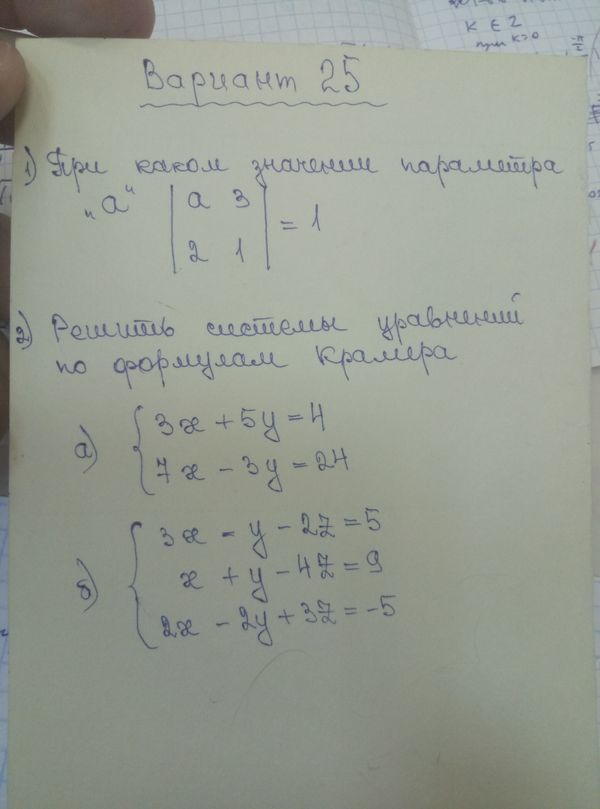 K ∈ Z
при K>0
Вариант 25
1) При каком значении параметра
"а" | а 3 |
| 2 1 | = 1
2) Решить системы уравнений
по формулам Крамера
а) { 3x + 5y = 4
7x - 3y = 24
б) { 3x - y - 2z = 5
x + y - 4z = 9
2x - 2y + 3z = -5